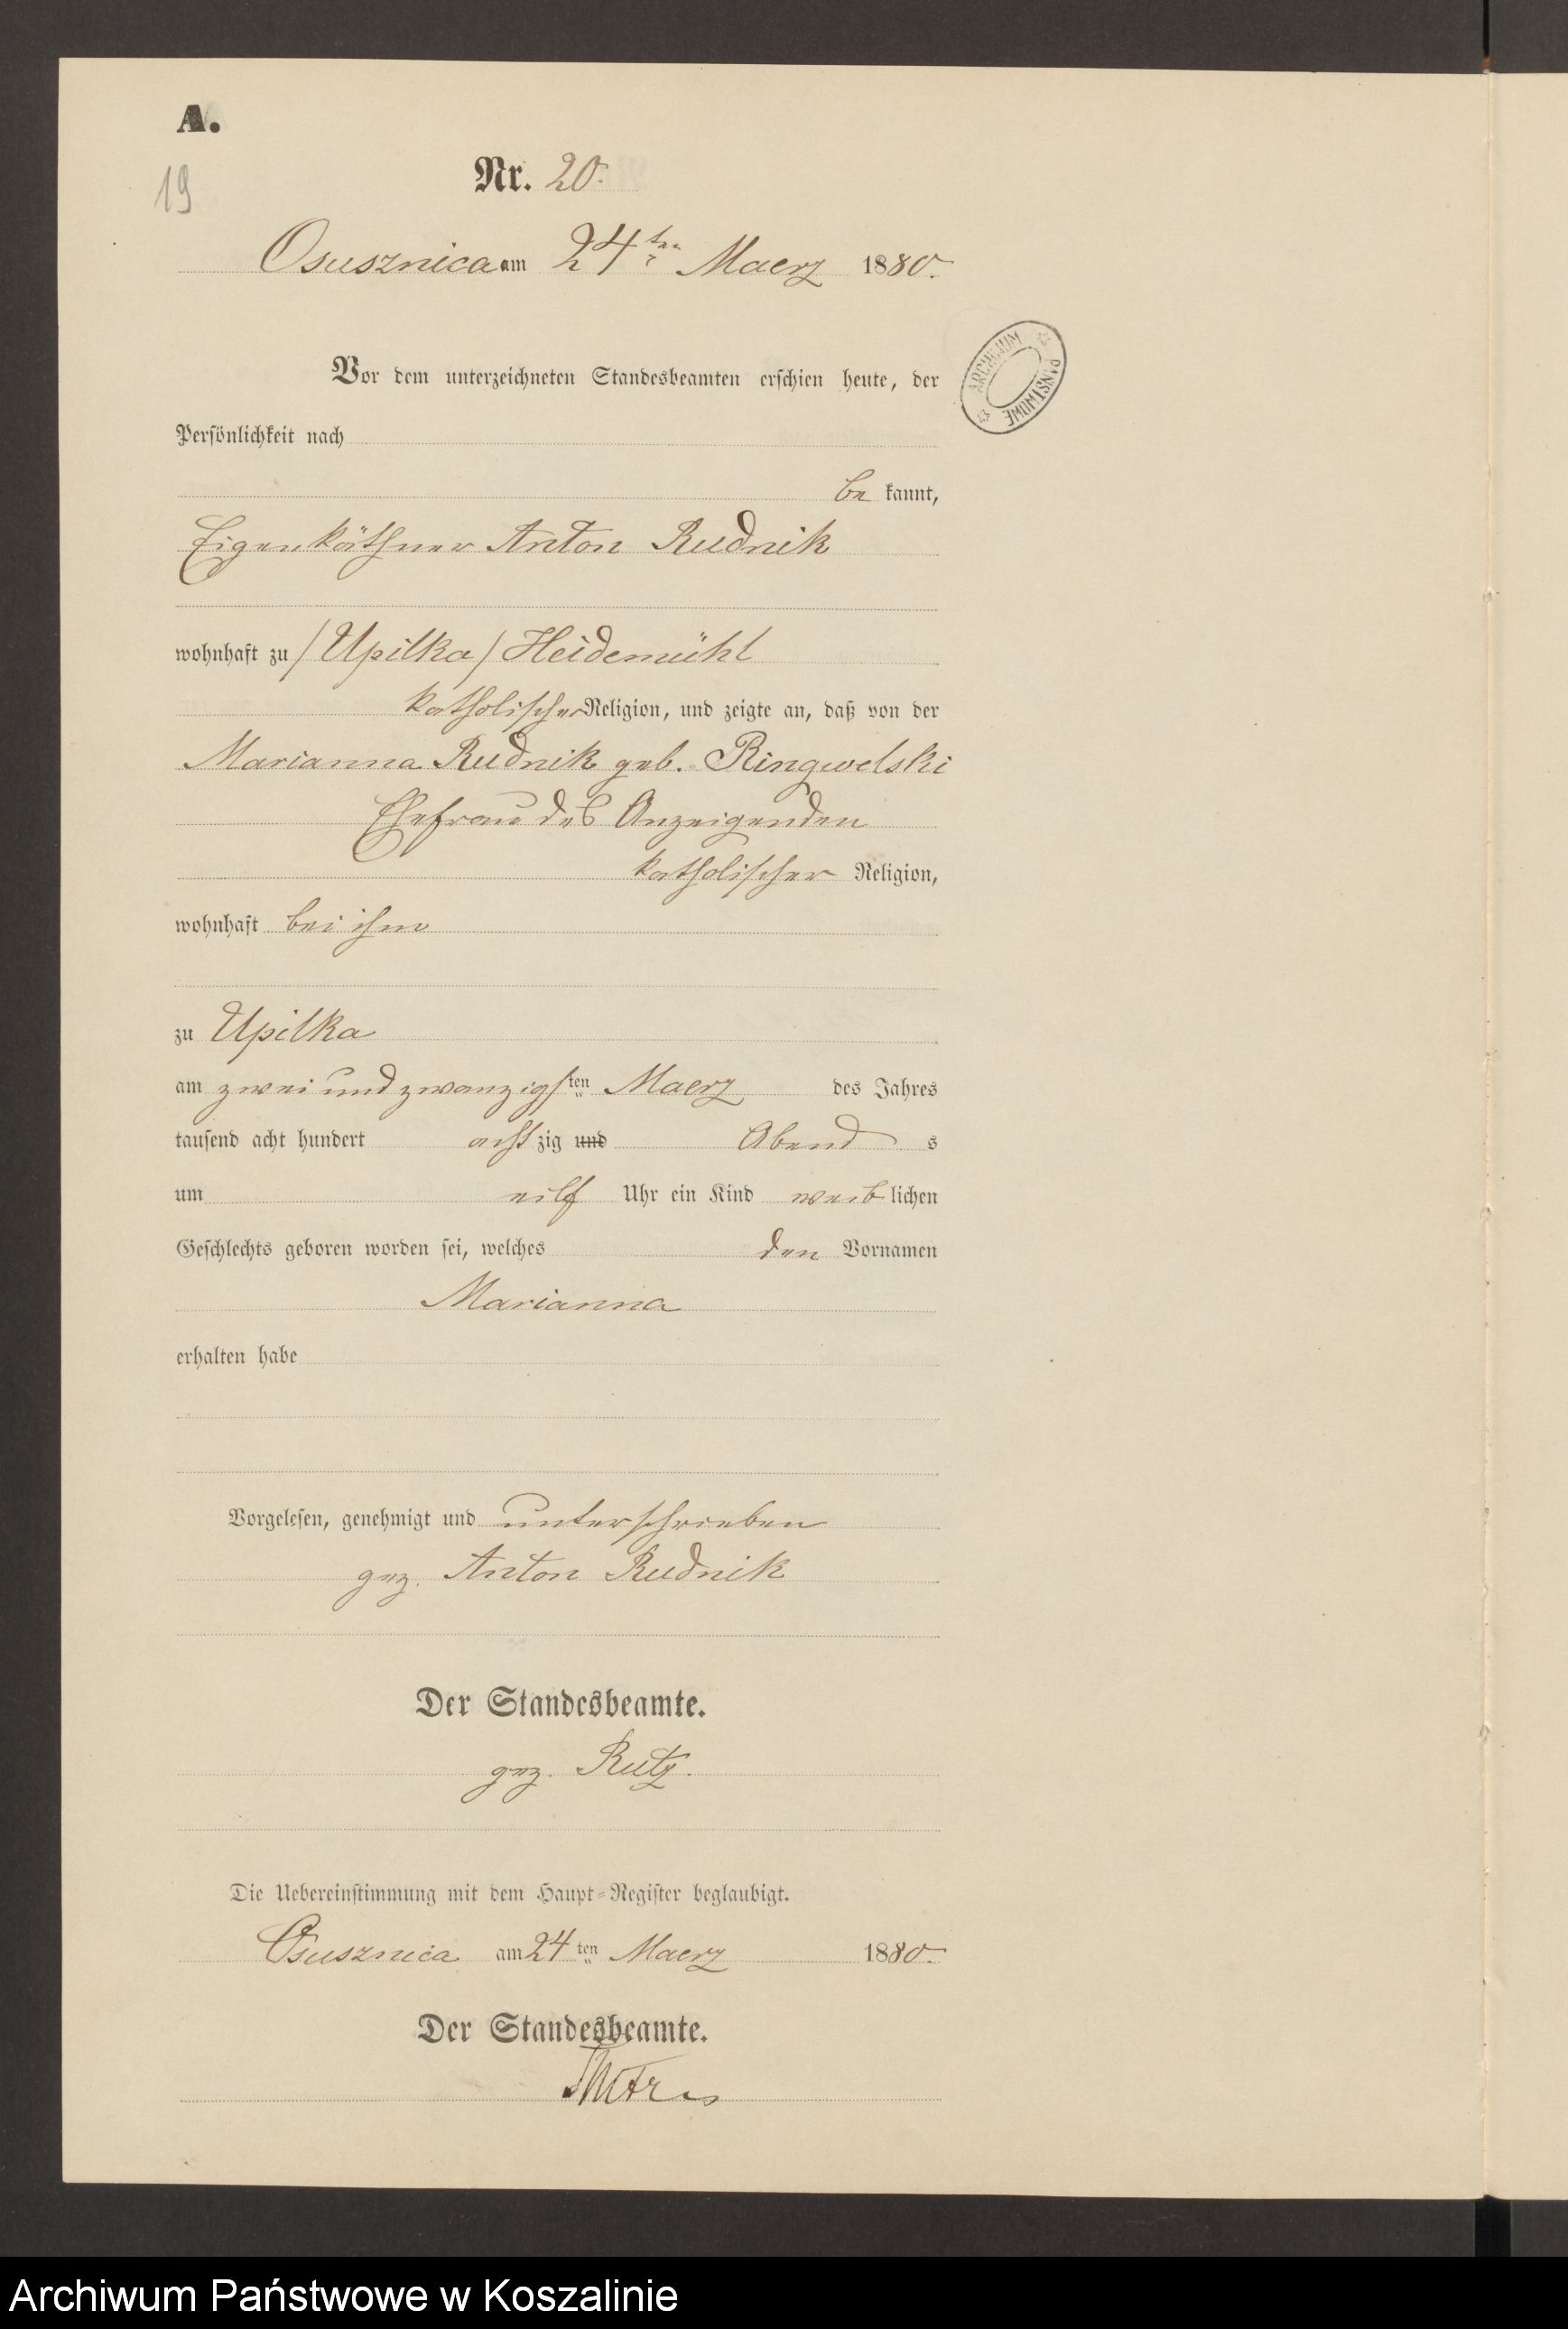 A.
19
Nr. 20.
Osusznica am 24ten Maerz 1880.
ARCHIWUM PAŃSTWOWE
Vor dem unterzeichneten Standesbeamten erschien heute, der
Persönlichkeit nach
be kannt,
Eigenkäthner Anton Rudnik
wohnhaft zu /Upilka/ Heidemühl
katholischer Religion, und zeigte an, daß von der
Marianna Rudnik geb. Ringwelski
Ehefrau des Anzeigenden
katholischer Religion,
wohnhaft bei ihm
zu Upilka
am zwei und zwanzigsten Maerz des Jahres
tausend acht hundert achtzig und Abend s
um eilf Uhr ein Kind weiblichen
Geschlechts geboren worden sei, welches den Vornamen
Marianna
erhalten habe
Vorgelesen, genehmigt und unterschrieben
gez. Anton Rudnik
Der Standesbeamte.
gez. Rutz.
Die Uebereinstimmung mit dem Haupt-Register beglaubigt.
Osusznica am 24ten Maerz 1880.
Der Standesbeamte.
Archiwum Państwowe w Koszalinie